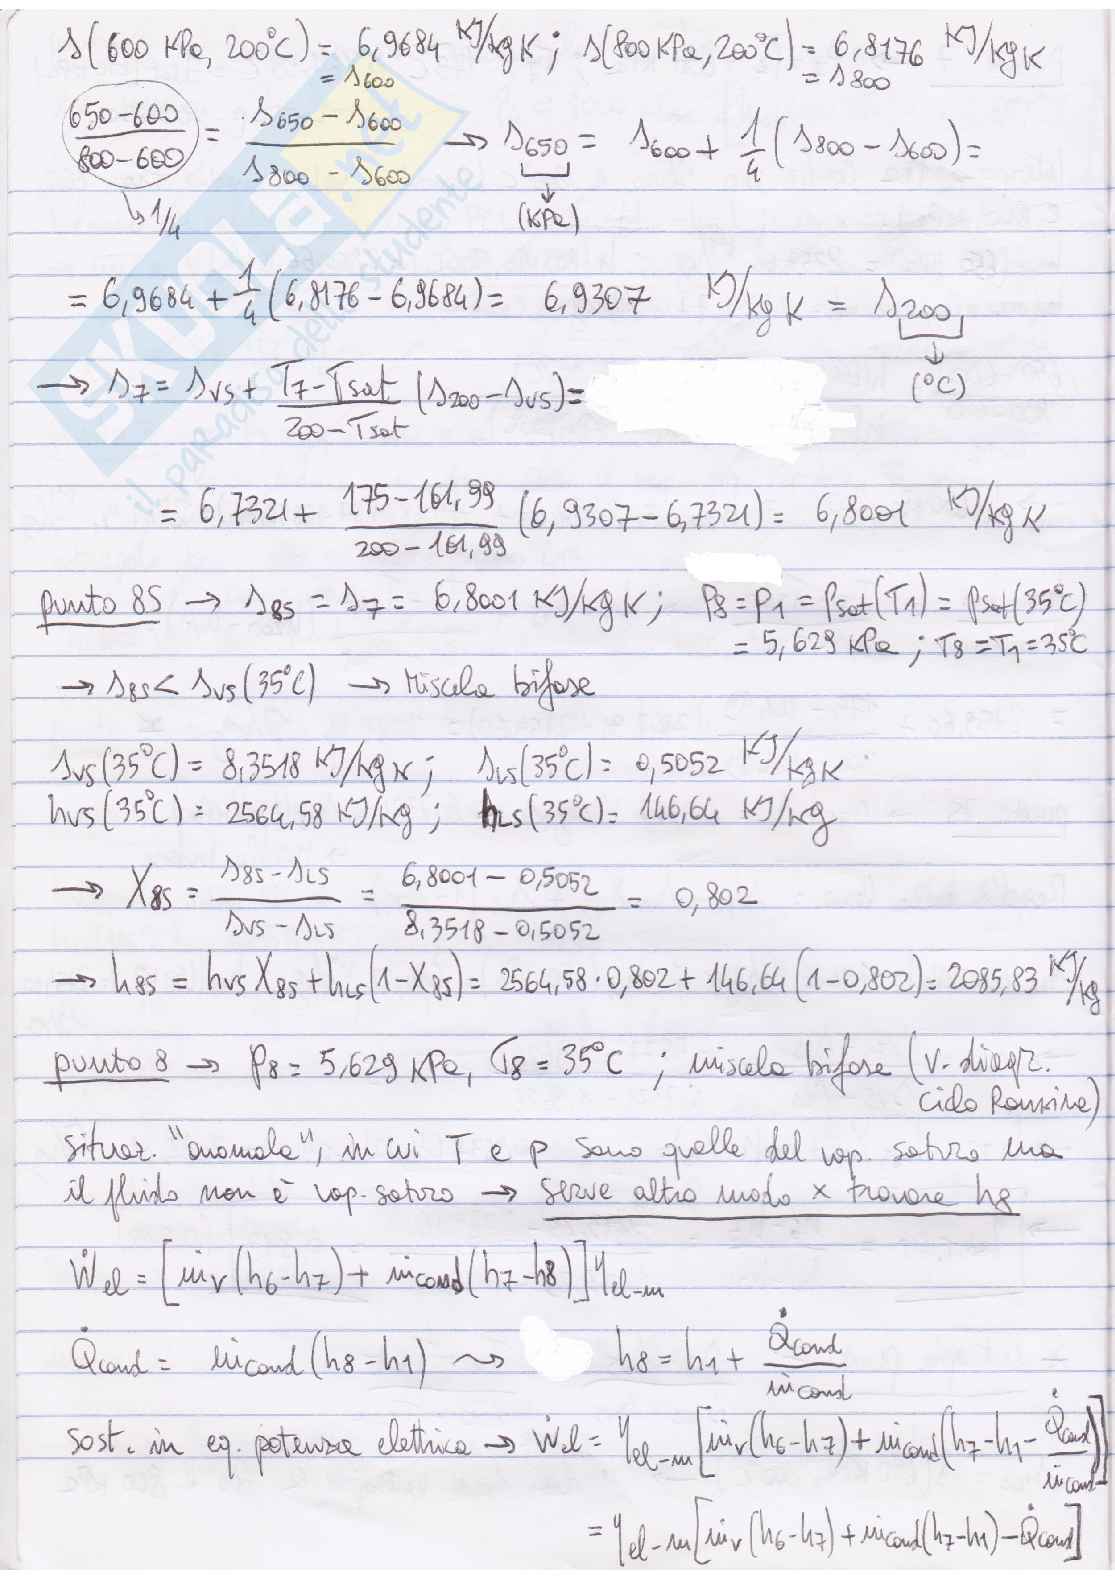 s(600 KPa, 200°C) = 6,9684 KJ/kgK ; s(800KPa, 200°C) = 6,8176 KJ/kgK
= s600 = s800
(650-600)/(800-600) = (s650 - s600)/(s800 - s600) → s650 = s600 + 1/4 (s800 - s600) =
↳ 1/4 (KPa)
= 6,9684 + 1/4 (6,8176 - 6,9684) = 6,9307 KJ/kgK = s200
(°C)
→ s7 = svs + (T7 - Tsat)/(200 - Tsat) (s200 - svs) =
= 6,7321 + (175 - 161,99)/(200 - 161,99) (6,9307 - 6,7321) = 6,8001 KJ/kgK
punto 8s → s8s = s7 = 6,8001 KJ/kgK ; p8 = p1 = psat(T1) = psat(35°C)
= 5,629 KPa ; T8 = T1 = 35°C
→ s8s < svs(35°C) → Miscela bifase
svs(35°C) = 8,3518 KJ/kgK ; sLs(35°C) = 0,5052 KJ/kgK
hvs(35°C) = 2564,58 KJ/kg ; hLs(35°C) = 146,64 KJ/kg
→ X8s = (s8s - sLs)/(svs - sLs) = (6,8001 - 0,5052)/(8,3518 - 0,5052) = 0,802
→ h8s = hvs X8s + hLs(1-X8s) = 2564,58·0,802 + 146,64 (1-0,802) = 2085,83 KJ/kg
punto 8 → p8 = 5,629 KPa, T8 = 35°C ; miscela bifase (v. diagr.
ciclo Rankine)
situaz. "anomala", in cui T e p sono quelle del vap. saturo ma
il fluido non è vap. saturo → serve altro modo x trovare h8
Ẇel = [ṁv (h6-h7) + ṁcond (h7-h8)] ηel-m
Q̇cond = ṁcond (h8-h1) ⇝ h8 = h1 + Q̇cond/ṁcond
sost. in eq. potenza elettrica → Ẇel = ηel-m [ṁv (h6-h7) + ṁcond (h7-h1 - Q̇cond/ṁcond)]
= ηel-m [ṁv (h6-h7) + ṁcond (h7-h1) - Q̇cond]
SKUOLA.net
il paradiso dello studente